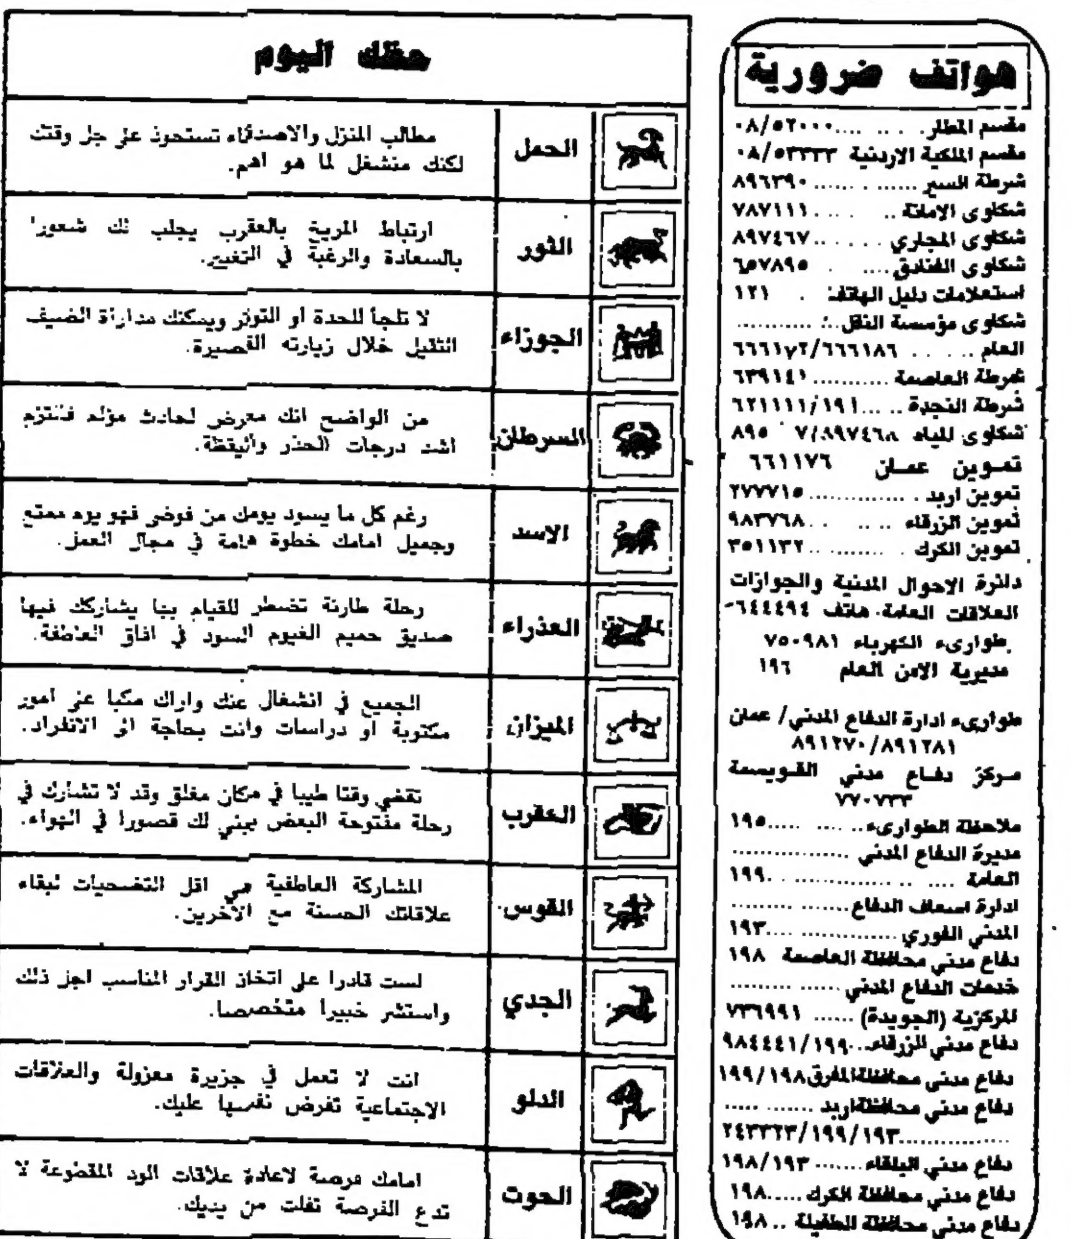 هواتف ضرورية
مقسم المطار. . .. .. ....٠٨/٥٢٠٠٠
مقسم الملكية الاردنية ٠٨/٥٣٣٣٣
شرطة السير ...... . ...... ٨٩٦٣٩٠
شكاوى الامانة .. .. ....٧٨٧١١١
شكاوى المجاري . . . . ...٨٩٧٤٦٧
شكاوى الفنادق .... . ٦٥٧٨٩٥
استعلامات دليل الهاتف . ١٢١
شكاوى مؤسسة النقل.. ...........
العام .. . . . ٦٦٦١٧٢/٦٦٦١٨٦
شرطة العاصمة ........... ٦٣٩١٤١
شرطة النجدة .. ...٦٢١١١١/١٩١
شكاوى المياه ٧/٨٩٧٤٦٨ ٨٩٥
تموين عمان ٦٦١١٧٦
تموين اربد . ............ ٢٧٧٧١٥
تموين الزرقاء .. .. . .٩٨٣٧٦٨
تموين الكرك . ......... ..٣٥١١٣٢
دائرة الاحوال المدنية والجوازات
العلاقات العامة. هاتف ٦٤٤٤٩٤-
طوارىء الكهرباء ٧٥٠٩٨١
مديرية الامن العام ١٩٦
طوارىء ادارة الدفاع المدني/ عمان
٨٩١٢٧٠/٨٩١٢٨١
مركز دفاع مدني القويسمة
٧٧٠٧٣٣
ملاحظة الطوارىء.. .... .....١٩٥
مديرة الدفاع المدني ................
العامة .... .. .............. ..١٩٩
ادارة اسعاف الدفاع........ .........
المدني الفوري .............. ....١٩٣
دفاع مدني محافظة العاصمة ١٩٨
خدمات الدفاع المدني ...... .........
المركزية (الجويدة) ...... ٧٣٦٩٩١
دفاع مدني الزرقاء...٩٨٤٤٤١/١٩٩
دفاع مدني محافظة المفرق١٩٩/١٩٨
دفاع مدني محافظة اربد ....... .....
................٢٤٣٣٢٣/١٩٩/١٩٣
دفاع مدني البلقاء ....... ١٩٨/١٩٣
دفاع مدني محافظة الكرك .....١٩٨
دفاع مدني محافظة الطفيلة .. ١٩٨
حظك اليوم
الحمل
مطالب المنزل والاصدقاء تستحوذ على جل وقتك
لكنك منشغل لما هو اهم.
الثور
ارتباط المريخ بالعقرب يجلب لك شعورا
بالسعادة والرغبة في التغيير.
الجوزاء
لا تلجأ للحدة او التوتر ويمكنك مداراة الضيف
الثقيل خلال زيارته القصيرة.
السرطان
من الواضح انك معرض لحادث مؤلم فلتلتزم
اشد درجات الحذر واليقظة.
الاسد
رغم كل ما يسود يومك من فوضى فهو يوم ممتع
وجميل امامك خطوة هامة في مجال العمل.
العذراء
رحلة طارئة تضطر للقيام بها يشاركك فيها
صديق حميم الغيوم السود في افاق العاطفة.
الميزان
الجميع في انشغال عنك واراك مكبا على امور
مكتوبة او دراسات وانت بحاجة الى الانفراد.
العقرب
تقضي وقتا طيبا في مكان مغلق وقد لا تشارك في
رحلة مفتوحة البعض يبني لك قصورا في الهواء.
القوس
المشاركة العاطفية هي اقل التضحيات لبقاء
علاقاتك الحسنة مع الآخرين.
الجدي
لست قادرا على اتخاذ القرار المناسب اجل ذلك
واستشر خبيرا متخصصا.
الدلو
انت لا تعمل في جزيرة معزولة والعلاقات
الاجتماعية تفرض نفسها عليك.
الحوت
امامك فرصة لاعادة علاقات الود المقطوعة لا
تدع الفرصة تفلت من يديك.